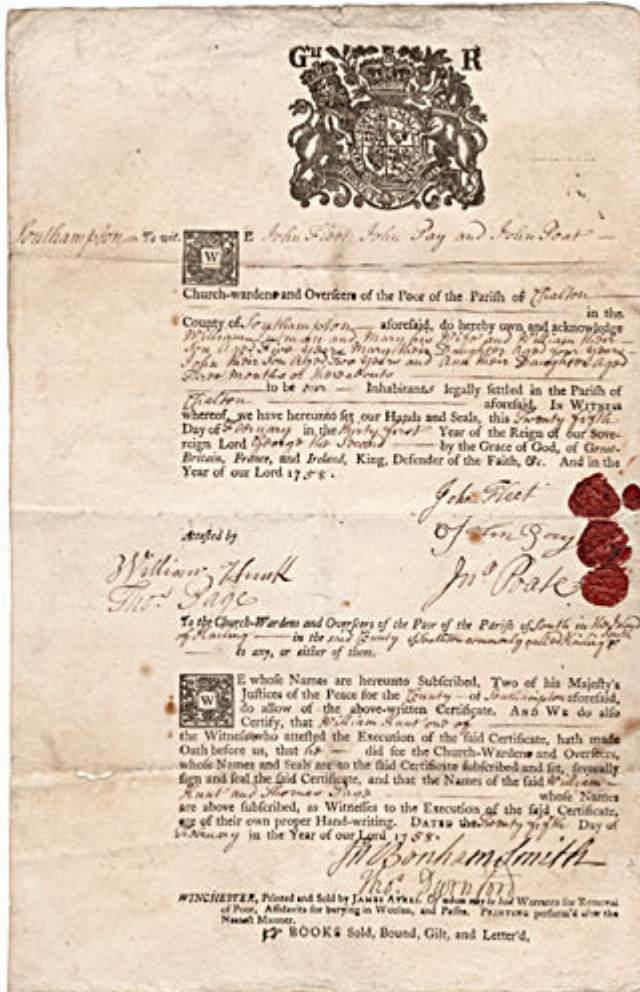 G II R
Southampton To wit. WE John Fleet John Pay and John Poat
Church-wardens and Overseers of the Poor of the Parish of Chalton
in the
County of Southampton aforesaid, do hereby own and acknowledge
William and Mary his Wife and William their
Son Aged Five Years Mary their Daughter Aged four Years
John their Son Aged Two Years and Ann their Daughter Aged
Three Months or thereabouts
to be our Inhabitants legally settled in the Parish of
Chalton aforesaid. IN WITNESS
whereof, we have hereunto set our Hands and Seals, this Twenty fifth
Day of February in the thirty first Year of the Reign of our Sove-
reign Lord George the Second by the Grace of God, of Great-
Britain, France, and Ireland, King, Defender of the Faith, &c. And in the
Year of our Lord 1758.
John Fleet
Attested by
John Pay
William Hunt
Jno Poate
Thos. Page
To the Church-Wardens and Overseers of the Poor of the Parish of South in the Island
of Hailing in the said County of Southton commonly called Hailing South
to any, or either of them.
WE whose Names are hereunto Subscribed, Two of his Majesty's
Justices of the Peace for the County of Southampton aforesaid,
do allow of the above-written Certificate. AND WE do also
Certify, that William Hunt one of
the Witnesses who attested the Execution of the said Certificate, hath made
Oath before us, that he did see the Church-Wardens and Overseers,
whose Names and Seals are to the said Certificate subscribed and set, severally
sign and seal the said Certificate, and that the Names of the said William
Hunt and Thomas Page whose Names
are above subscribed, as Witnesses to the Execution of the said Certificate,
are of their own proper Hand-writing. DATED the Twenty fifth Day of
February in the Year of our Lord 1758.
Bonham Smith
Thos. Durnford
WINCHESTER, Printed and Sold by JAMES AYRES. Of whom may be had Warrants for Removal
of Poor, Affidavits for burying in Woollen, and Passes. PRINTING perform'd after the
Neatest Manner.
BOOKS Sold, Bound, Gilt, and Letter'd.